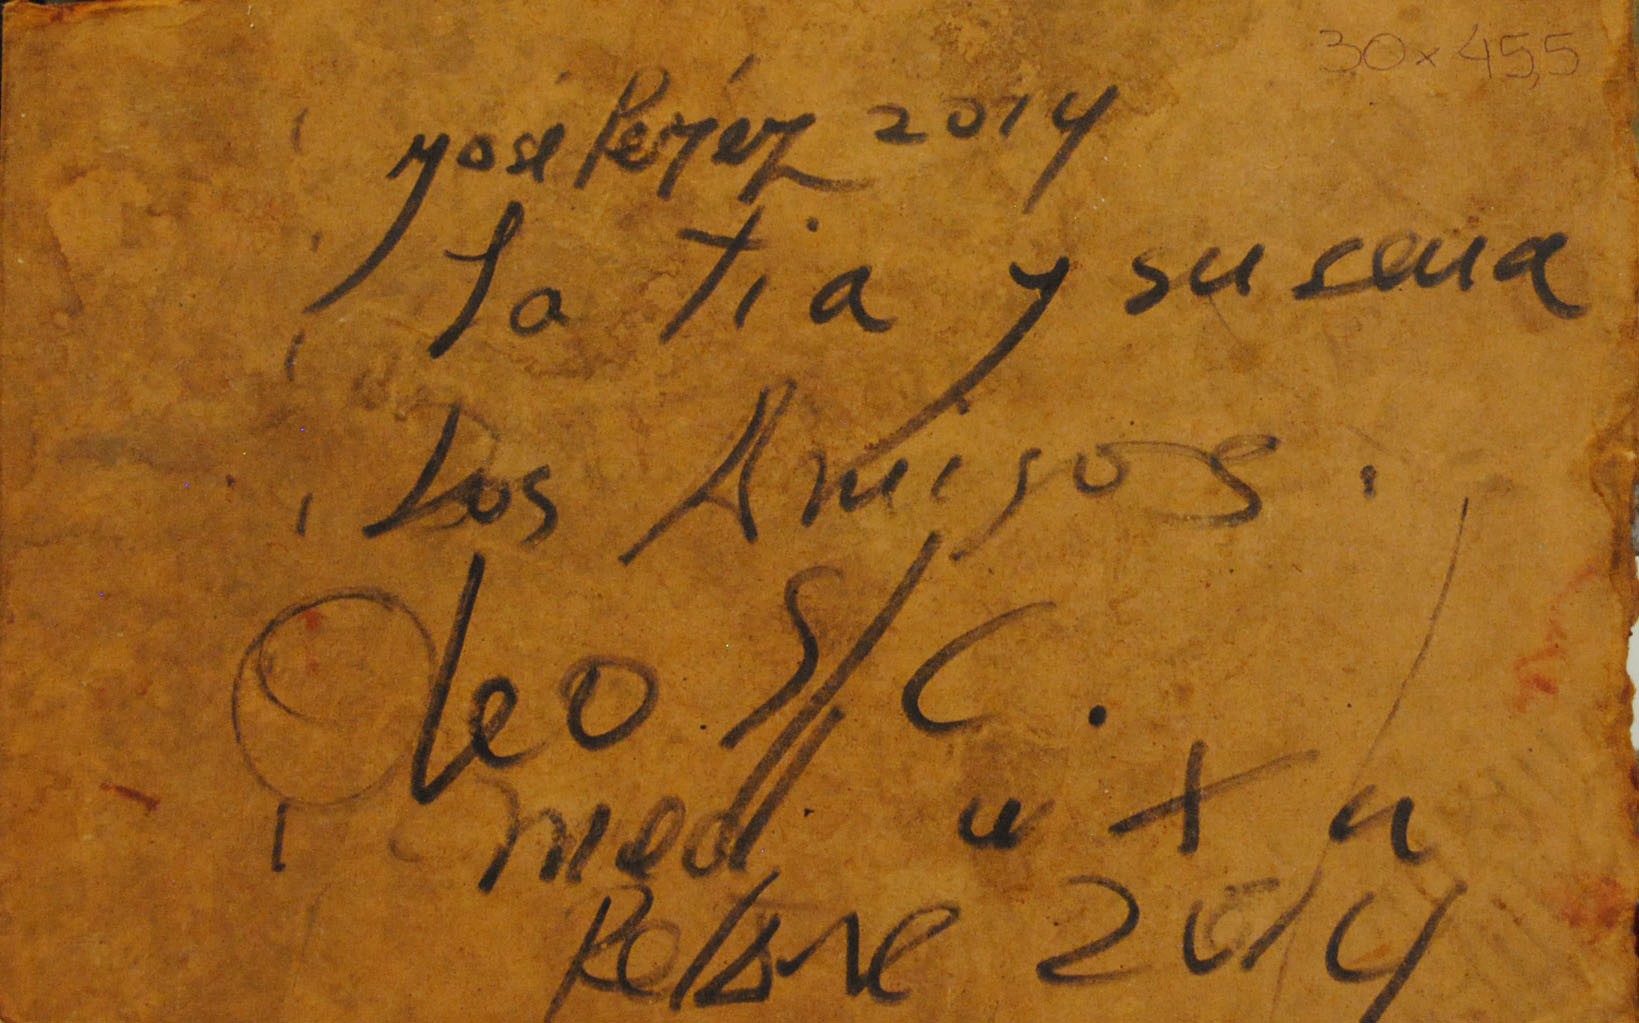 30x45,5
José Peréz 2014
La tia y su
Los Amigos.
Oleo S/C.
Med. u x u
2014